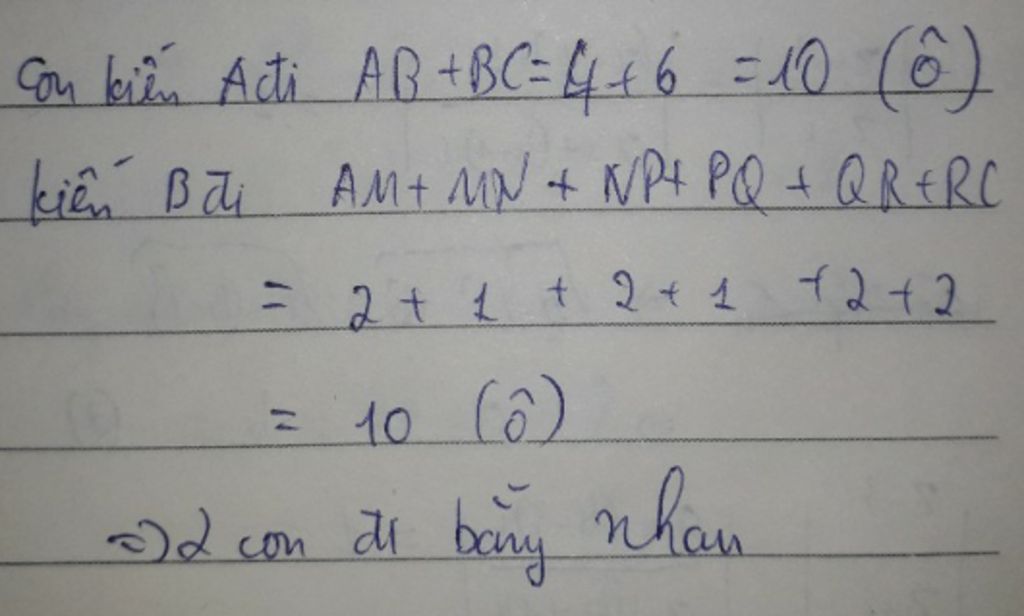 Con kiến A đi AB + BC = 4 + 6 = 10 (ô)
kiến B đi AM + MN + NP + PQ + QR + RC
= 2 + 1 + 2 + 1 + 2 + 2
= 10 (ô)
=> 2 con đi bằng nhau